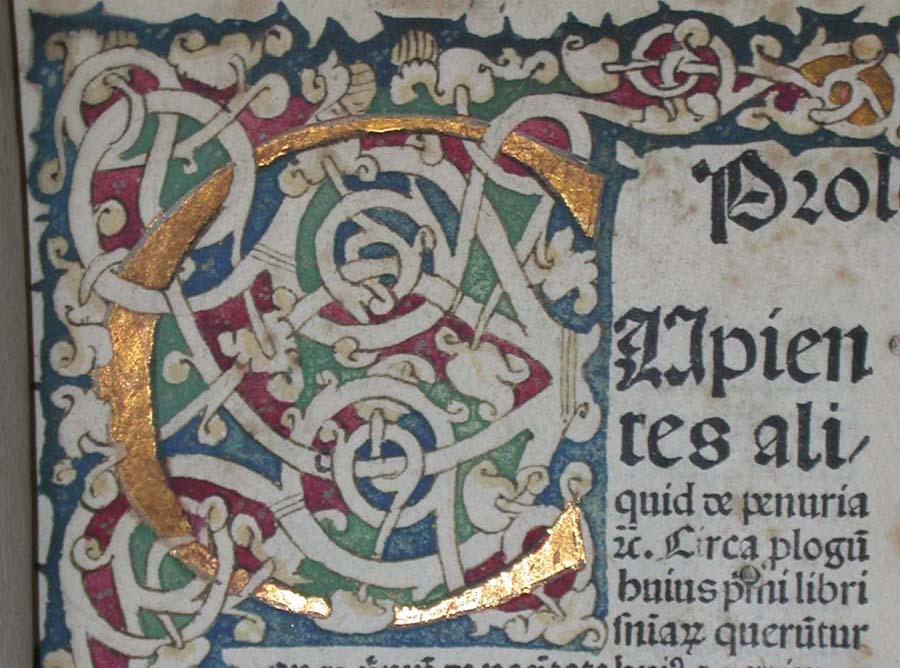 Prol
CUpien
tes ali/
quid de penuria
⁊c̄. Circa ꝓlogū
huius pͥmi libri
ſniaꝝ querūtur